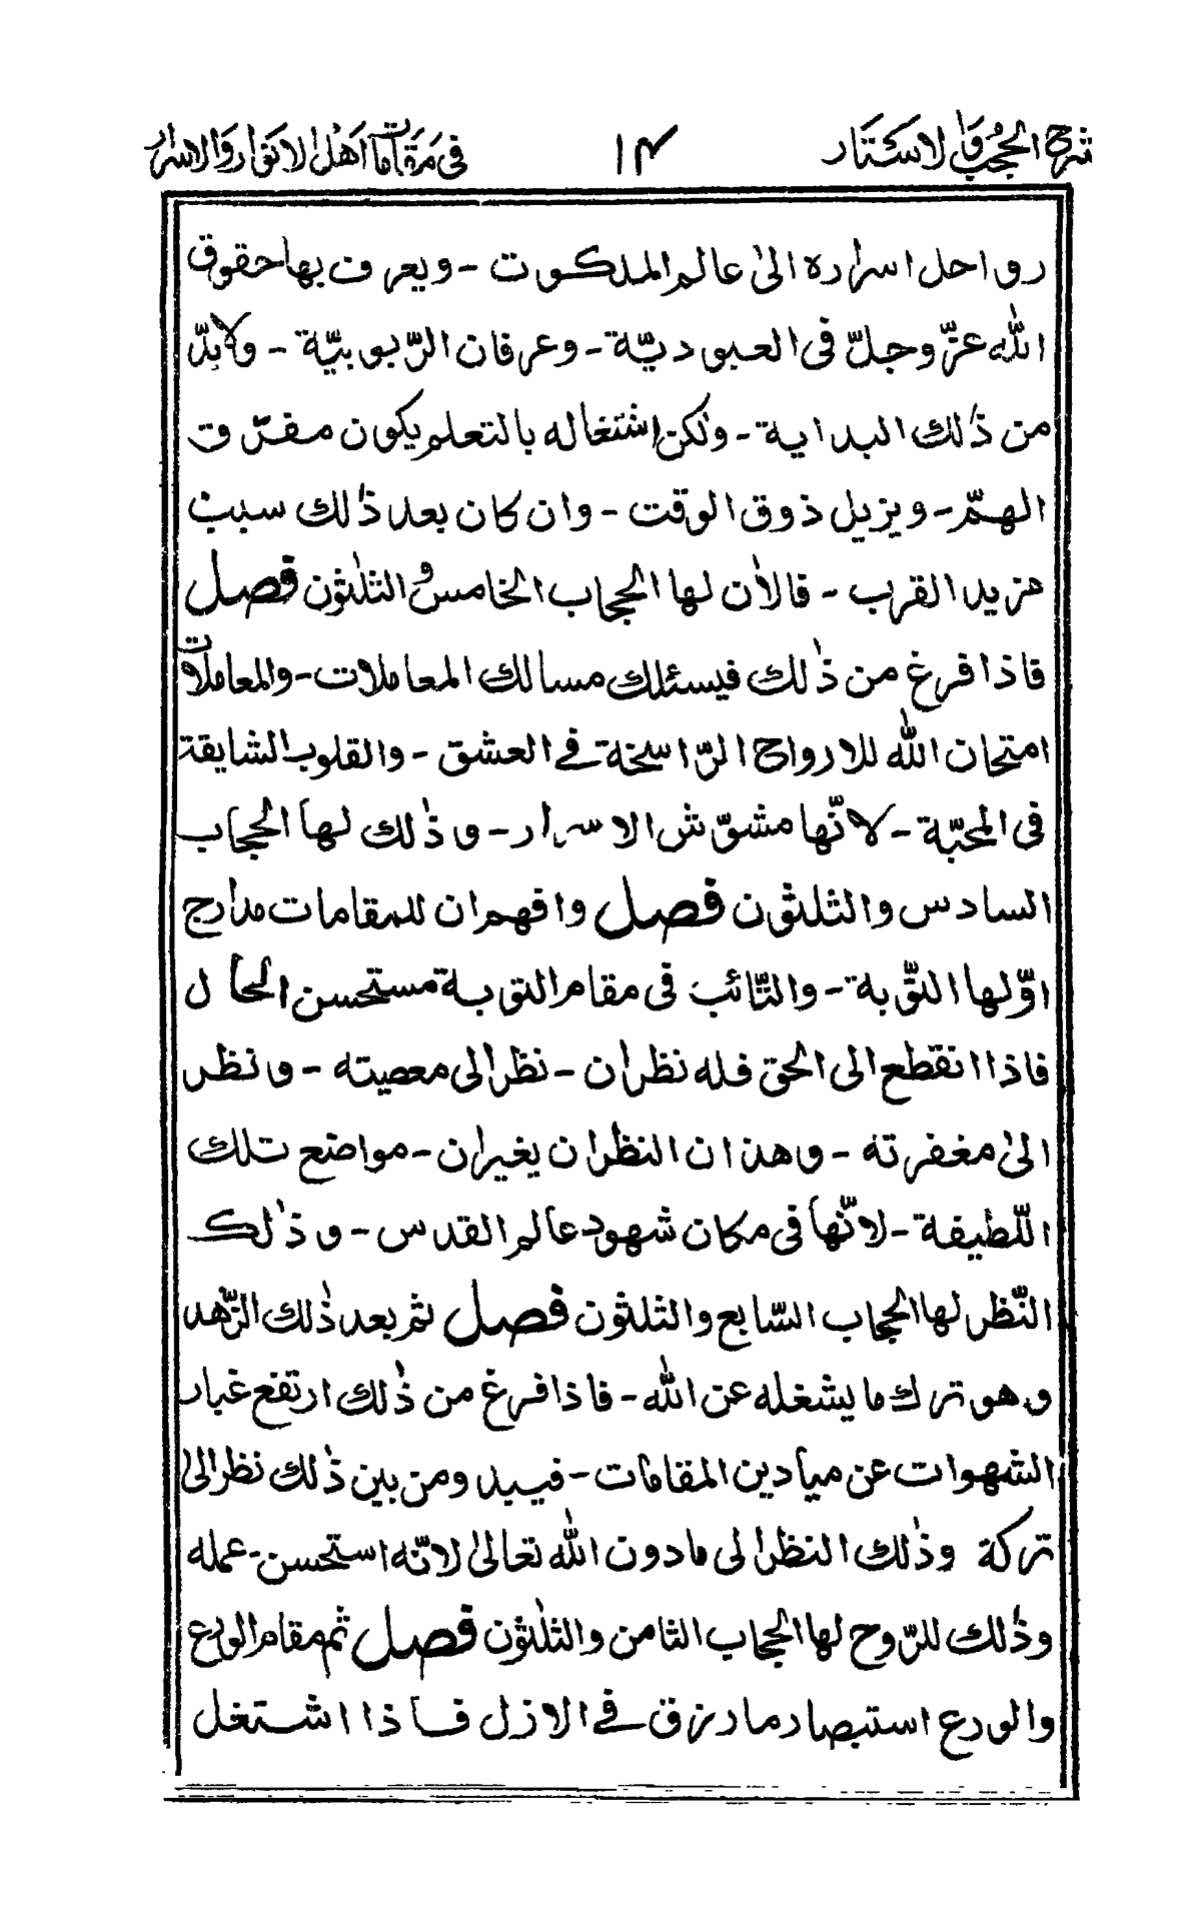 شرح الحجب والاستار ۱۴ فی مقامات اهل الانوار والاسرار
رواحل اسراره الیٰ عالم الملکوت - ویعرف بها حقوق
اللّٰه عزّ وجلّ فی العبودیّة - وعرفان الرّبوبیّة - ولابدّ
من ذٰلك البدایة - ولٰکن اشتغاله بالتعلم یکون مفرّق
الهمّ - ویزیل ذوق الوقت - وان کان بعد ذٰلك سبب
مزید القرب - فالاٰن لها الحجاب الخامس والثلٰثون فصل
فاذا فرغ من ذٰلك فیسئلك مسالك المعاملات - والمعاملات
امتحان اللّٰه للارواح الرّاسخة فے العشق - والقلوب الشایقة
فی المحبّة - لانّها مشوّش الاسرار - وذٰلك لها الحجاب
السادس والثلثون فصل وافهم ان للمقامات مدارج
اوّلها التّوبة - والتّائب فی مقام التوبة مستحسن الحال
فاذا انقطع الی الحق فله نظران - نظر الی معصیته - ونظر
الیٰ مغفرته - وهذان النظران یغیران - مواضع تلك
اللّطیفة - لانّها فی مکان شهود عالم القدس - وذٰلك
النّظر لها الحجاب السّابع والثلثون فصل ثم بعد ذٰلك الزّهد
وهو ترك ما یشغله عن اللّٰه - فاذا فرغ من ذٰلك ارتفع غبار
الشهوات عن میادین المقامات - فیبدو من بین ذٰلك نظر الیٰ
ترکة وذٰلك النظر الی مادون اللّٰه تعالیٰ لانّه استحسن - عمله
وذٰلك للرّوح لها الحجاب الثامن والثلٰثون فصل ثم مقام الورع
والورع استبصار ما رزق فے الازل فاذا اشتغل